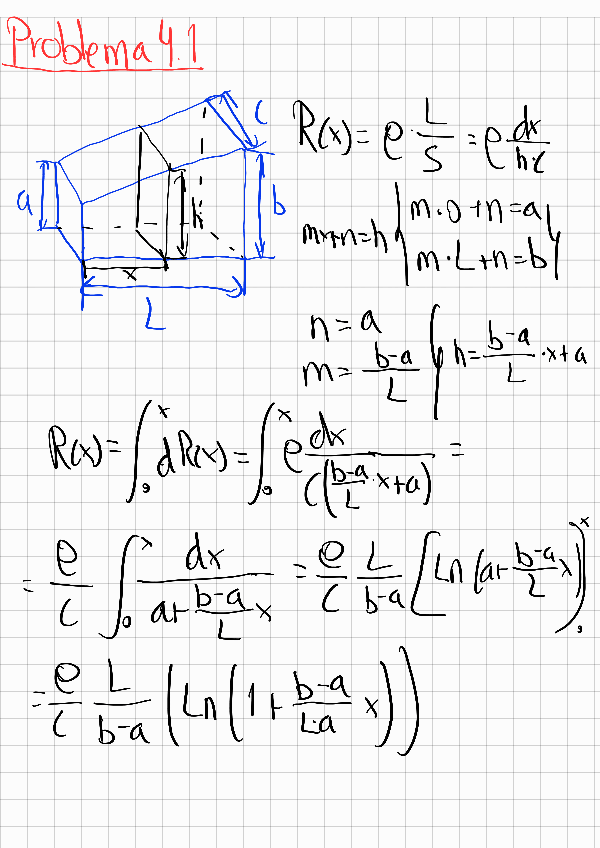 Problema 4.1
a
h
b
c
x
L
R(x) = ρ · L/S = ρ dx/(h·c)
mx+n=h { m·0+n=a
m·L+n=b }
n=a
m = (b-a)/L } h = (b-a)/L · x+a
R(x) = ∫₀ˣ dR(x) = ∫₀ˣ ρ dx/(c((b-a)/L · x+a)) =
= ρ/c ∫₀ˣ dx/(a+(b-a)/L x) = ρ/c L/(b-a) [Ln(a+(b-a)/L x)]₀ˣ
= ρ/c L/(b-a) (Ln(1+(b-a)/(L·a) x))